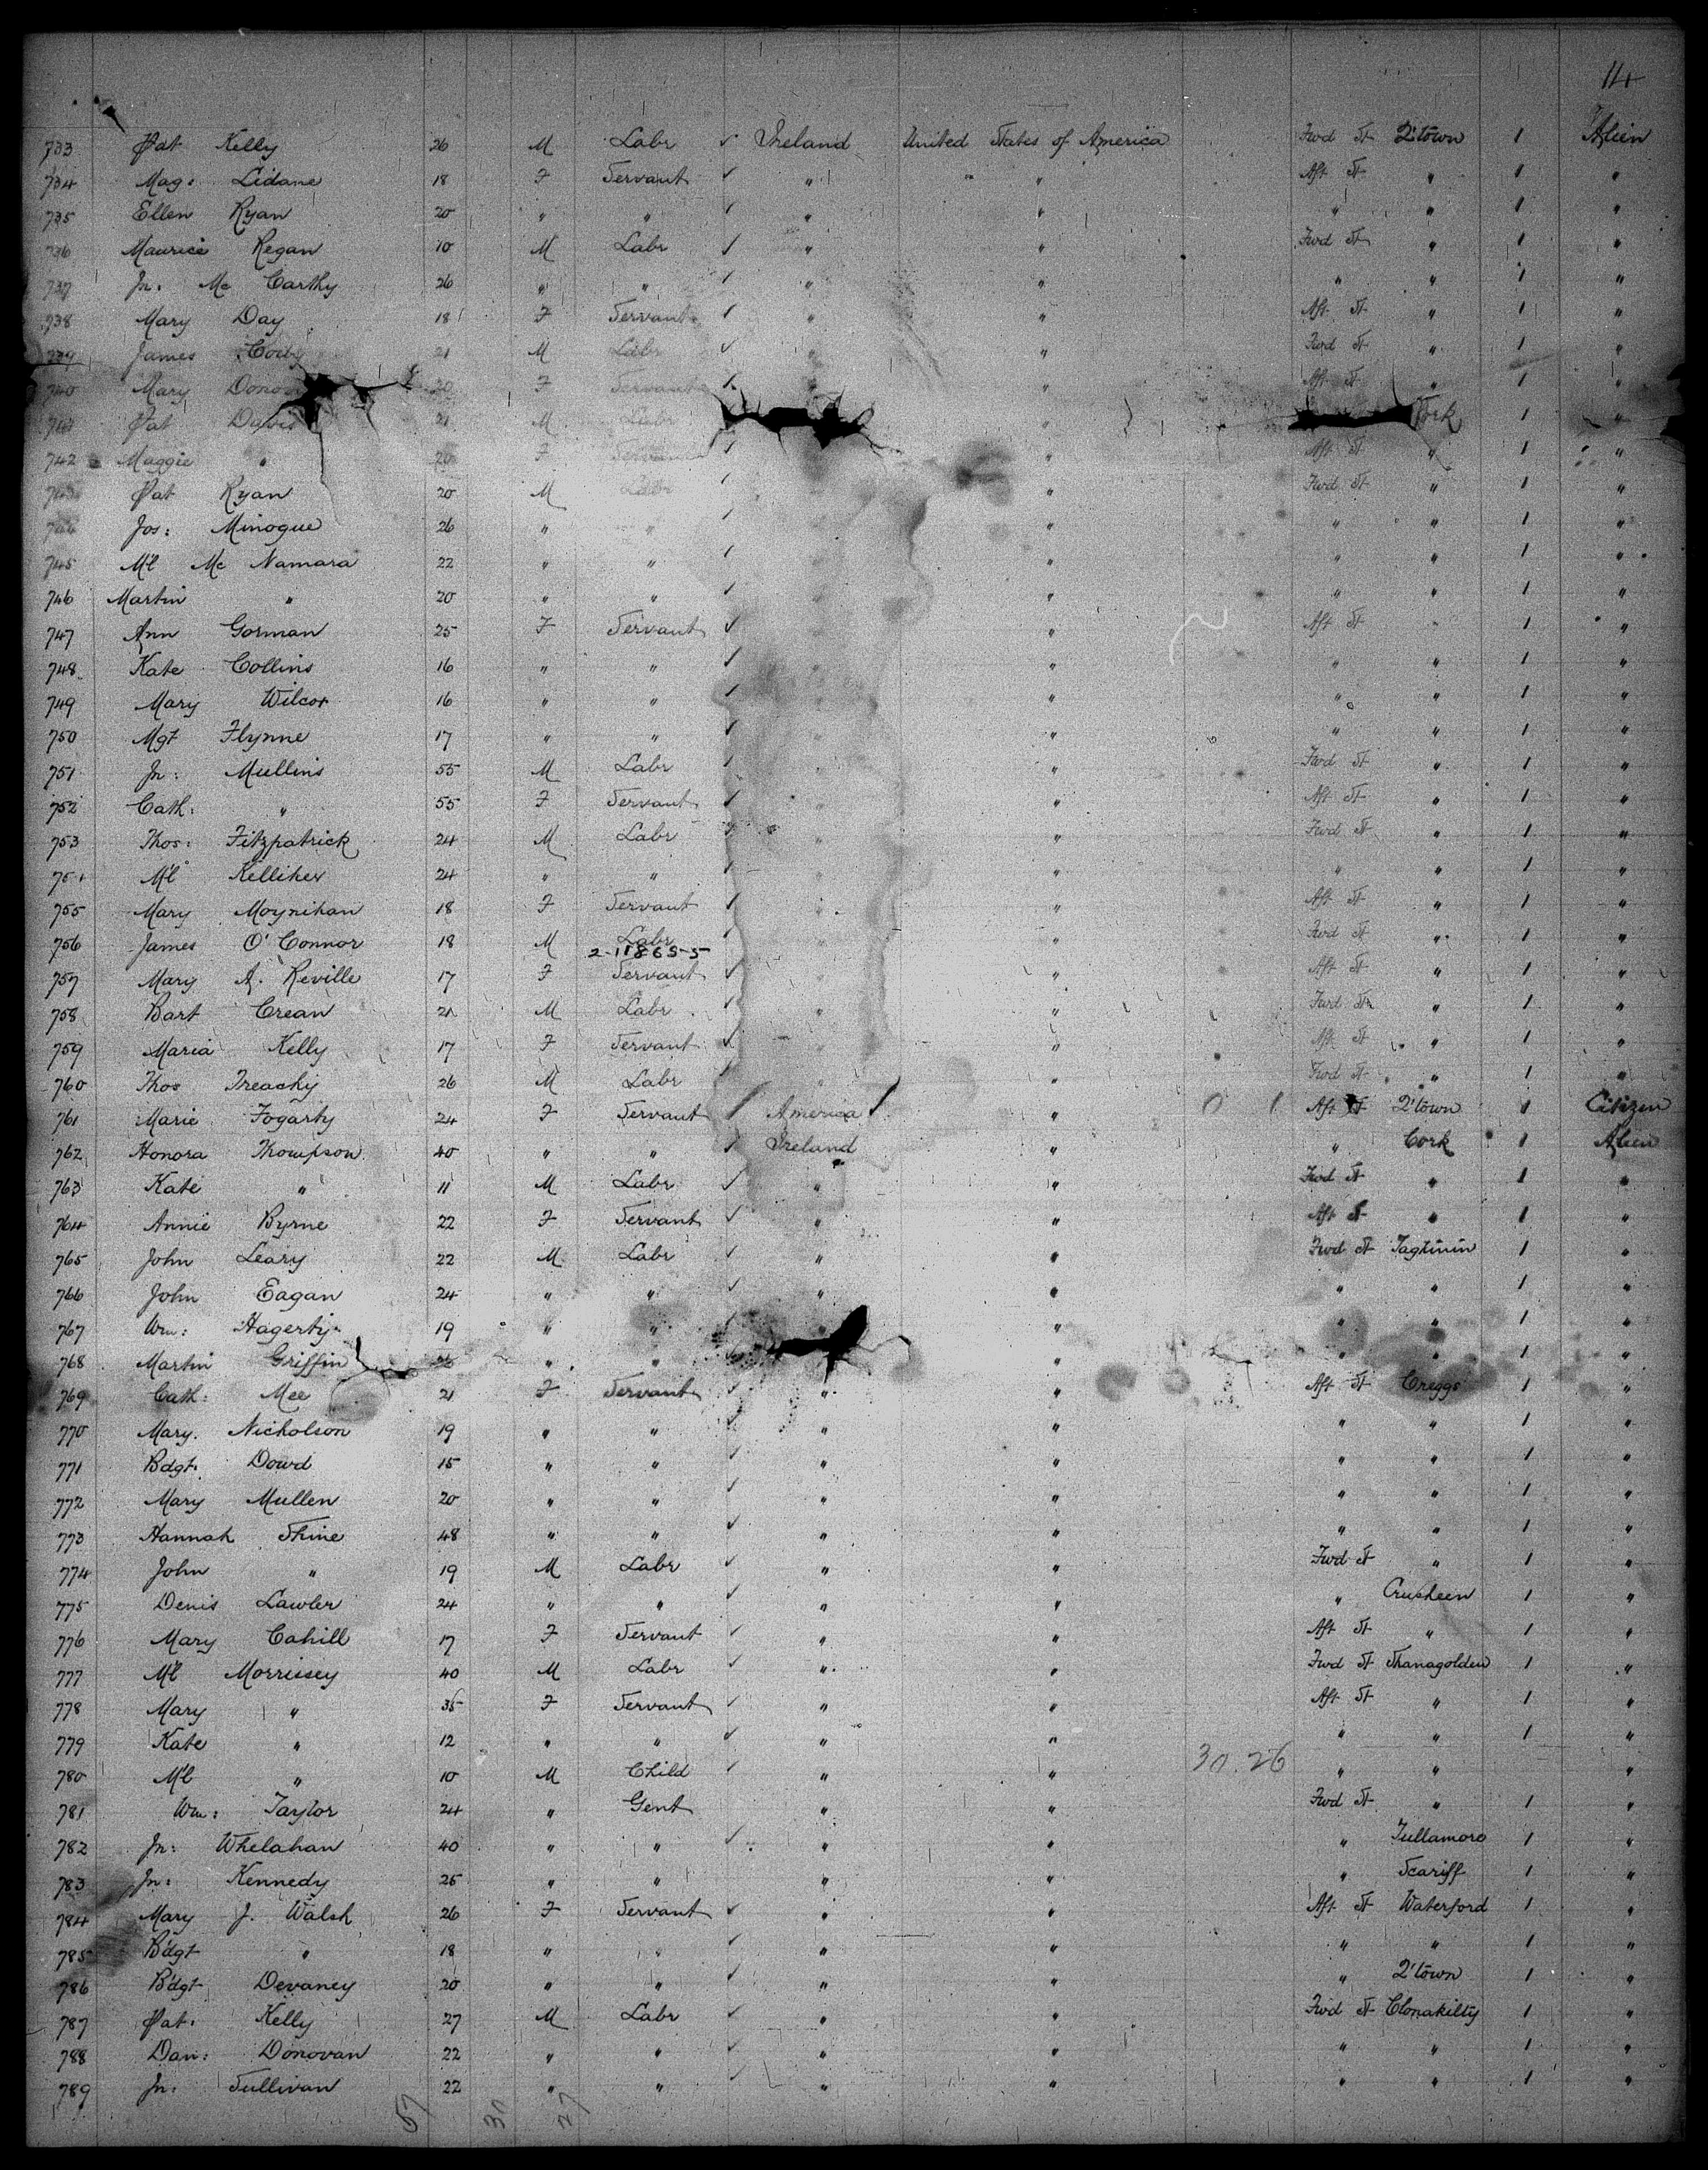 14
733 Pat Kelly 26 M Labr ✓ Ireland United States of America Fwd St Q'town 1 Alien
734 Mag: Lidane 18 F Servant ✓ " " Aft St " 1 "
735 Ellen Ryan 20 " " ✓ " " " " 1 "
736 Maurice Regan 10 M Labr ✓ " " Fwd St " 1 "
737 Jn. Mc Carthy 26 " " ✓ " " " " 1 "
738 Mary Day 18 F Servant ✓ " " Aft St " 1 "
739 James 21 M Labr ✓ " " Fwd St " 1 "
740 Mary 20 F Servant ✓ " Aft St " 1 "
741 Pat Davis 21 M Labr " Cork 1 "
742 Maggie " 20 F Servant ✓ " Aft St " 1 "
743 Pat Ryan 20 M Labr ✓ " Fwd St " 1 "
744 Jos: Minogue 26 " " ✓ " " " 1 "
745 Ml Mc Namara 22 " " ✓ " " " 1 "
746 Martin " 20 " " ✓ " " " 1 "
747 Ann Gorman 25 F Servant ✓ " Aft St " 1 "
748 Kate Collins 16 " " ✓ " " " " 1 "
749 Mary Wilcox 16 " " ✓ " " " 1 "
750 Mgt Flynne 17 " " ✓ " " " 1 "
751 Jn: Mullins 55 M Labr ✓ " " Fwd St " 1 "
752 Cath: " 55 F Servant ✓ " " Aft St " 1 "
753 Thos: Fitzpatrick 24 M Labr ✓ " " Fwd St " 1 "
754 Ml Kelliher 24 " " ✓ " " " " 1 "
755 Mary Moynihan 18 F Servant ✓ " " Aft St " 1 "
756 James O'Connor 18 M Labr ✓ " " Fwd St " 1 "
2-118655
757 Mary A. Reville 17 F Servant ✓ " " Aft St " 1 "
758 Bart Crean 21 M Labr ✓ " " Fwd St " 1 "
759 Maria Kelly 17 F Servant ✓ " " Aft St " 1 "
760 Thos Treachy 26 M Labr ✓ " " Fwd St " 1 "
761 Marie Fogarty 24 F Servant ✓ America ✓ " 0 1 Aft St Q'town 1 Citizen
762 Honora Thompson 40 " " ✓ Ireland " " Cork 1 Alien
763 Kate " 11 M Labr ✓ " " Fwd St " 1 "
764 Annie Byrne 22 F Servant ✓ " " Aft St " 1 "
765 John Leary 22 M Labr ✓ " " Fwd St 1 "
766 John Eagan 24 " " ✓ " " " " 1 "
767 Wm: Hagerty 19 " " ✓ " " " " 1 "
768 Martin Griffin " " ✓ " " " 1 "
769 Cath: Mee 21 F Servant ✓ " " Aft St Creggs 1 "
770 Mary. Nicholson 19 " " ✓ " " " " 1 "
771 Bdgt. Dowd 15 " " ✓ " " " " 1 "
772 Mary Mullen 20 " " ✓ " " " " 1 "
773 Hannah Shine 48 " " ✓ " " " " 1 "
774 John " 19 M Labr ✓ " " Fwd St " 1 "
775 Denis Lawler 24 " " ✓ " " " Crusheen 1 "
776 Mary Cahill 17 F Servant ✓ " " Aft St " 1 "
777 Ml Morrissey 40 M Labr ✓ " " Fwd St Shanagolden 1 "
778 Mary " 35 F Servant ✓ " " Aft St " 1 "
779 Kate " 12 " " ✓ " " " " 1 "
780 Ml " 10 M Child ✓ " " 30.26 " " "
781 Wm: Taylor 24 " Gent " " Fwd St " 1 "
782 Jn: Whelahan 40 " " ✓ " " " Tullamore 1 "
783 Jn: Kennedy 25 " " " " " Scariff 1 "
784 Mary J. Walsh 26 F Servant ✓ " " Aft St Waterford 1 "
785 Bdgt " 18 " " ✓ " " " " 1 "
786 Bdgt Devaney 20 " " ✓ " " " Q'town 1 "
787 Pat. Kelly 27 M Labr ✓ " " Fwd St Clonakilty 1 "
788 Dan: Donovan 22 " " ✓ " " " " 1 "
789 Jn: Sullivan 22 " " ✓ " " " " 1 "
57 30 27